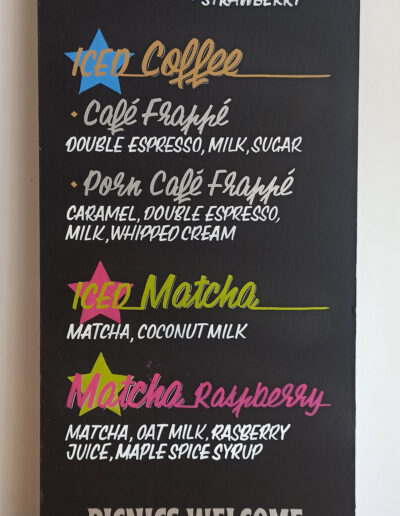 STRAWBERRY
ICED Coffee
· Café Frappé
DOUBLE ESPRESSO, MILK, SUGAR
· Porn Café Frappé
CARAMEL, DOUBLE ESPRESSO,
MILK, WHIPPED CREAM
ICED Matcha
MATCHA, COCONUT MILK
Matcha Raspberry
MATCHA, OAT MILK, RASBERRY
JUICE, MAPLE SPICE SYRUP
PICNICS WELCOME